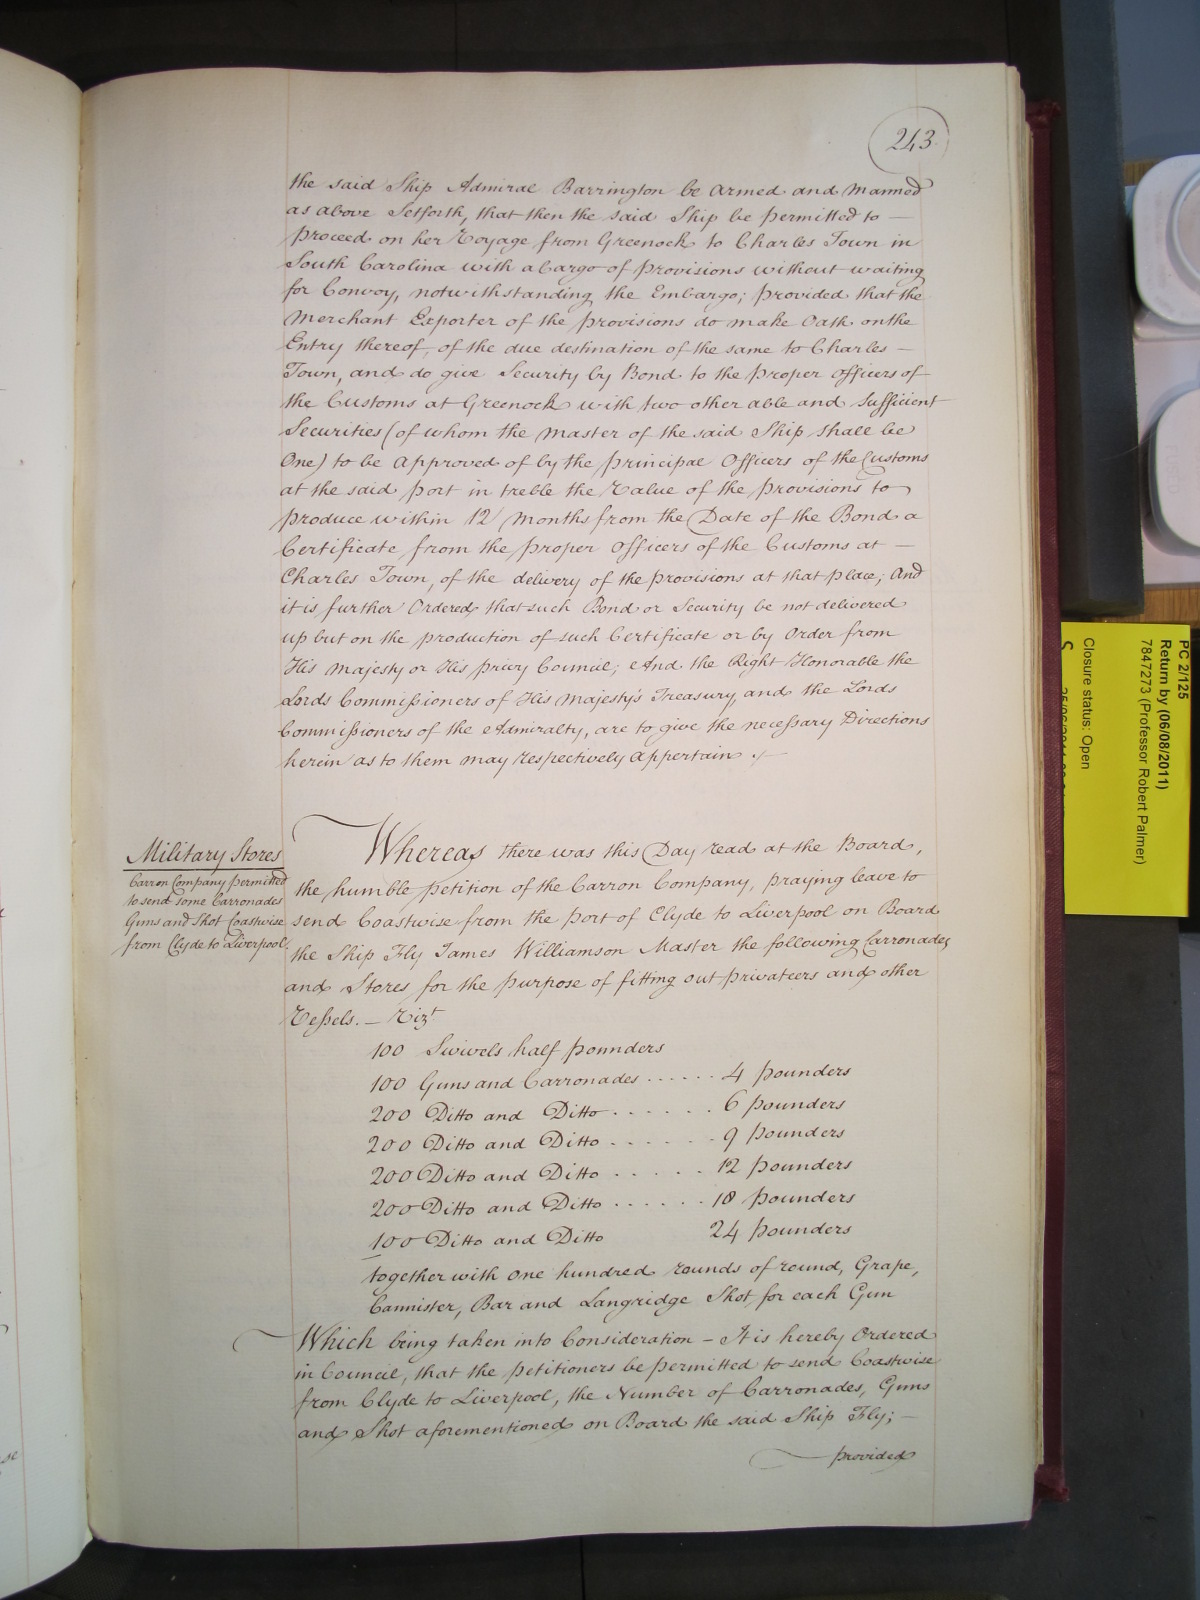 243
the said Ship Admiral Barrington be armed and manned
as above Setforth, that then the said Ship be permitted to —
proceed on her Voyage from Greenock to Charles Town in
South Carolina with a Cargo of Provisions without waiting
for Convoy, notwithstanding the Embargo; provided that the
Merchant Exporter of the provisions do make Oath on the
Entry thereof, of the due destination of the same to Charles —
Town, and do give Security by Bond to the proper officers of
the Customs at Greenock with two other able and sufficient
Securities (of whom the Master of the said Ship shall be
One) to be approved of by the principal Officers of the Customs
at the said port in treble the Value of the provisions to
produce within 12 Months from the Date of the Bond a
Certificate from the proper officers of the Customs at —
Charles Town, of the delivery of the provisions at that place; And
it is further Ordered that such Bond or Security be not delivered
up but on the production of such Certificate or by Order from
His Majesty or His privy Council; And the Right Honorable the
Lords Commissioners of His Majesty's Treasury, and the Lords
Commissioners of the Admiralty, are to give the necessary Directions
herein as to them may respectively appertain .
Military Stores
Carron Company permitted
to send some Carronades
Guns and Shot Coastwise
from Clyde to Liverpool.
Whereas there was this Day read at the Board,
the humble petition of the Carron Company, praying leave to
send Coastwise from the port of Clyde to Liverpool on Board
the Ship Fly James Williamson Master the following Carronades
and Stores for the purpose of fitting out privateers and other
Vessels. — Vizt
100 Swivels half pounders
100 Guns and Carronades ...... 4 pounders
200 Ditto and Ditto ...... 6 pounders
200 Ditto and Ditto ...... 9 pounders
200 Ditto and Ditto ..... 12 pounders
200 Ditto and Ditto ...... 18 pounders
100 Ditto and Ditto 24 pounders
together with one hundred rounds of round, Grape,
Cannister, Bar and Langridge Shot for each Gun
Which being taken into Consideration — It is hereby Ordered
in Council, that the petitioners be permitted to send Coastwise
from Clyde to Liverpool, the Number of Carronades, Guns
and Shot aforementioned on Board the said Ship Fly; —
provided
PC 2/125
Return by (06/08/2011)
7847273 (Professor Robert Palmer)
Closure status: Open